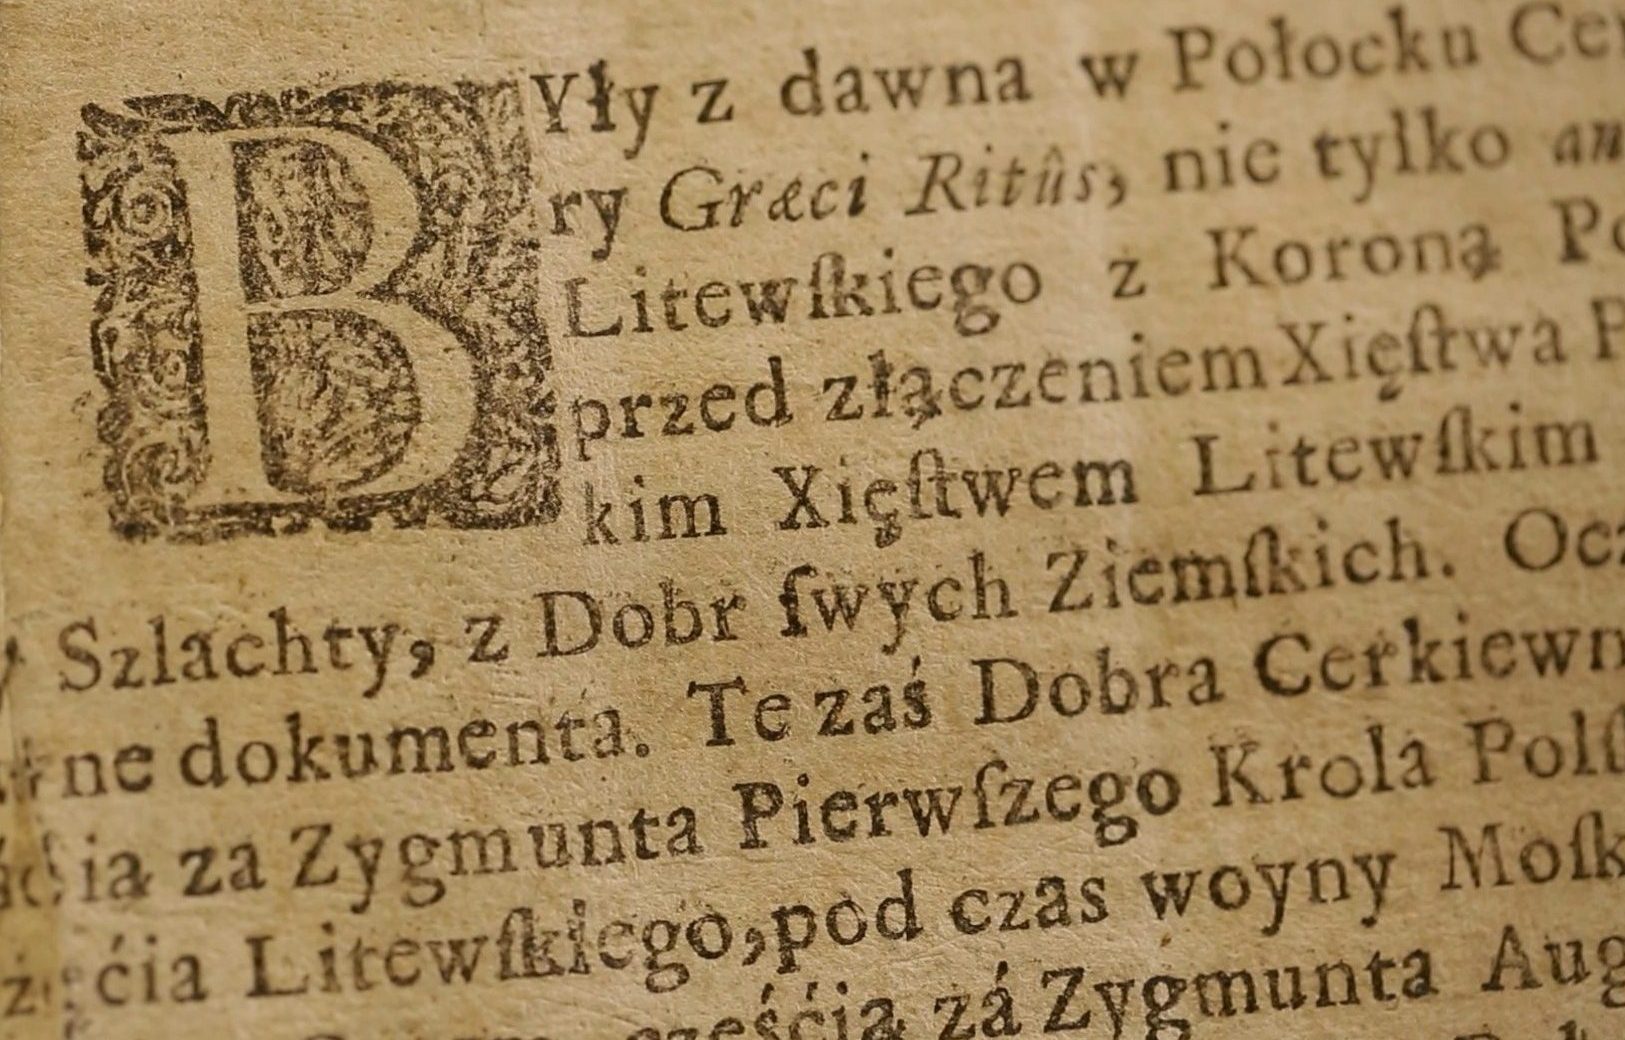 BYły z dawna w Połocku Ce
ry Græci Ritûs, nie tylko an
Litewſkiego z Koroną Po
przed złączeniem Xięſtwa P
kim Xięſtwem Litewſkim
Szlachty, z Dobr ſwych Ziemſkich. Ocz
ne dokumenta. Te zaś Dobra Cerkiewn
ia za Zygmunta Pierwſzego Krola Polſ
żęćia Litewſkiego, pod czas woyny Moſk
częśćią zá Zygmunta Aug